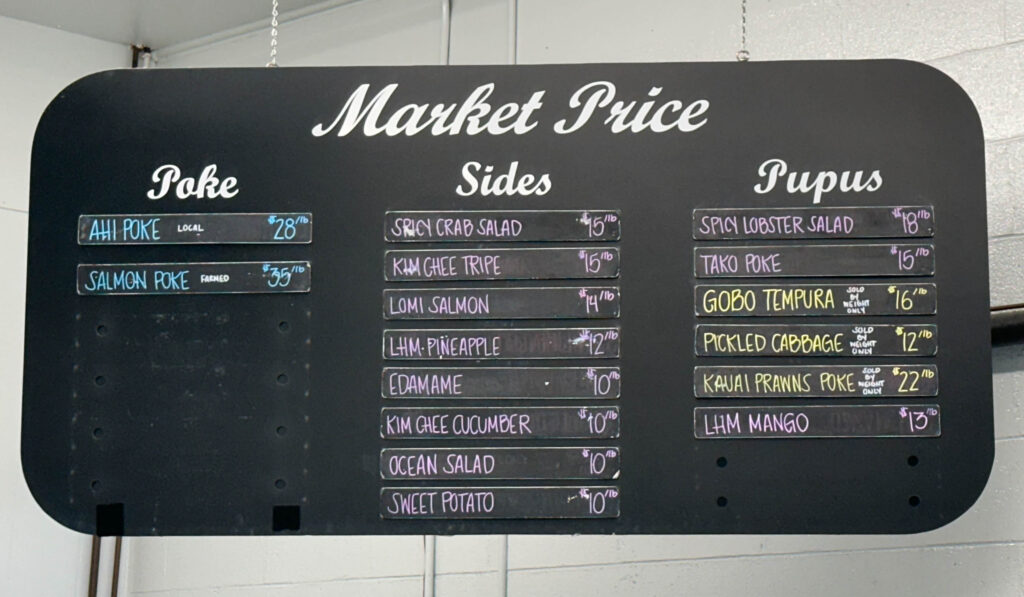 Market Price
Poke
AHI POKE LOCAL $28/lb
SALMON POKE FARMED $35/lb
Sides
SPICY CRAB SALAD $15/lb
KIM CHEE TRIPE $15/lb
LOMI SALMON $14/lb
LHM-PIÑEAPPLE $12/lb
EDAMAME $10/lb
KIM CHEE CUCUMBER $10/lb
OCEAN SALAD $10/lb
SWEET POTATO $10/lb
Pupus
SPICY LOBSTER SALAD $18/lb
TAKO POKE $15/lb
GOBO TEMPURA SOLD BY WEIGHT ONLY $16/lb
PICKLED CABBAGE SOLD BY WEIGHT ONLY $12/lb
KAUAI PRAWNS POKE SOLD BY WEIGHT ONLY $22/lb
LHM MANGO $13/lb